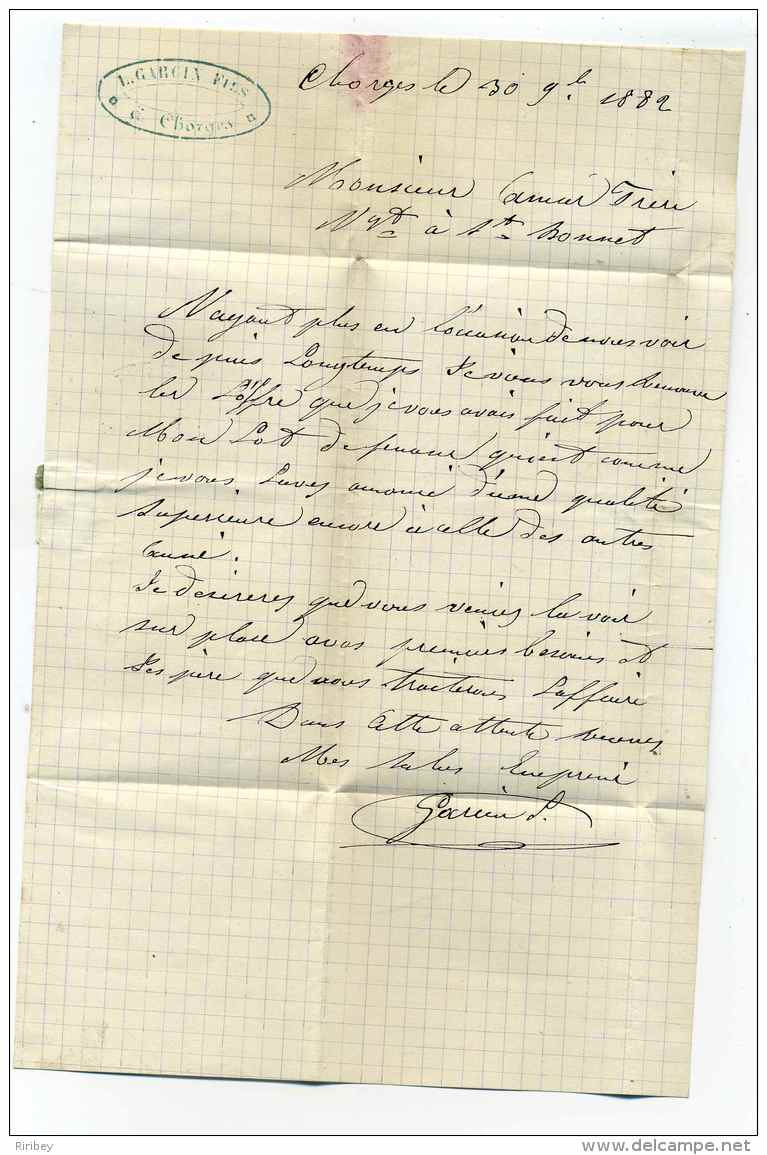 L. GARCIN FILS
à Chorges
Chorges le 30 9.b 1882
Monsieur Frère
Ngt à St Bonnet
N'ayant plus eu l'occasion de nous voir
de puis Longtemps Je viens vous Renouve
ler L'offre que je vous avais fait pour
Mon Lot de qui est comme
je vous Lavez d'une qualité
Superieure encore à celle des autres
année.
Je desireres que vous veniez la voir
sur place avos premiers besoins et
Jes père que nous traiterons L'affaire
Dans Cette attente recevez
Mes Salus Empressé
Garcin L.
Riribey
www.delcampe.net